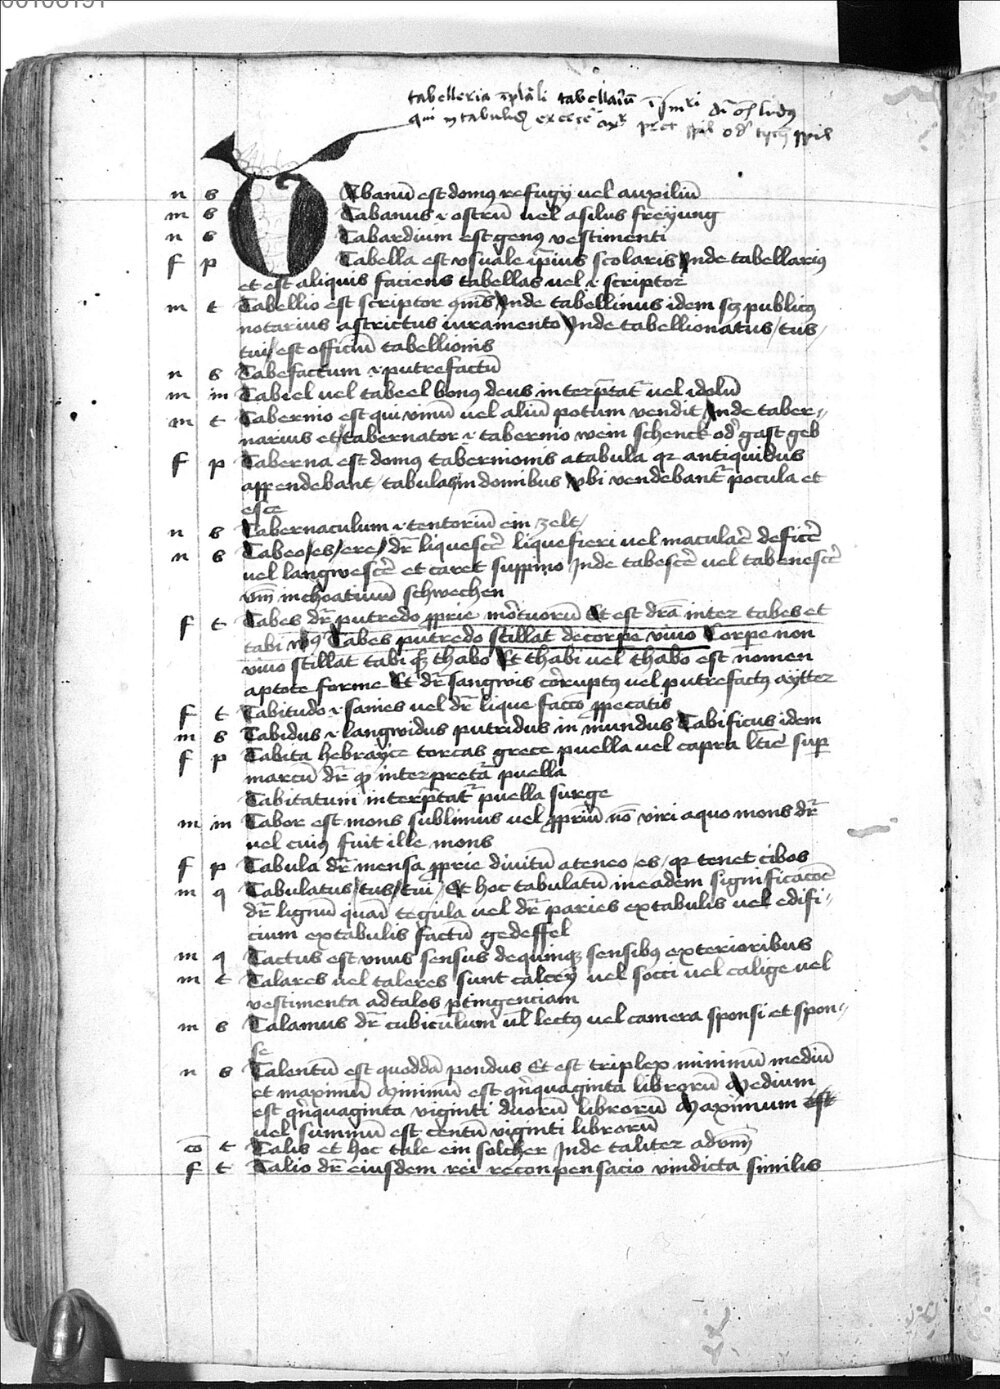 00100191
tabelleria īplāli tabellaiū ī
qui ī tabulis exerce pret spil od spil
n s Abanū est domus refugij uel auxiliū
m s Tabanus ⁊ ostrū uel asilus freyung
n s Tabardium est genus vestimenti
f p Tabella est vsuale ip̄ius scolaris Inde tabellarius
et est aliquis faciens tabellas uel ⁊ scriptor
m t Tabellio est scriptor Inde tabellinus idem scꝫ publicus
notarius astrictus iuramento Inde tabellionatus / tus /
tui / est officiū tabellionis
n s Tabefactum ⁊ putrefactū
m in Tabeel uel tabeel bonus deus interp̄tat᷑ uel idolū
m t Tabernio est qui vinū uel aliū potum vendit Inde taber-
narius et / tabernator ⁊ tabernio wein schenck od᷑ gast geb
f p Taberna est domus tabernionis a tabula qꝛ antiquidus
appendebant / tabulas in domibus vbi vendebant᷑ pocula et
esce
n s Tabernaculum ⁊ tentoriū ein zelt /
n s Tabeo / es / ere / dr̄ liquesce᷑ liquefieri uel maculare᷑ defice᷑
uel langwesce᷑ et caret suppino Inde tabesce᷑ uel tabenesce᷑
vm̄ inchoatiuum schwechen
f t Tabes dr̄ putredo ꝓprie mortuorū Et est dr̄a inter tabes et
tabi Tabes putredo stillat de corpe viuo Corpe non
viuo stillat tabi thabo Et thabi uel thabo est nomen
aptote forme Et dr̄ sangwis corruptus uel putrefactus aytter
f t Tabitudo ⁊ sanies uel dr̄ lique factō ꝓ peccatis
m s Tabidus ⁊ langwidus putridus in mundus Tabificus idem
f p Tabita hebrayce torcas grece puella uel capra
marcū dr̄ interpretā puella
Tabitatum interp̄tat᷑ puella surge
m in Tabor est mons sublimus uel ꝓpriū nō viri a quo mons dr̄
uel cuius fuit ille mons
f p Tabula dr̄ mensa ꝓprie diuitū a teneo / es / qꝛ tenet cibos
m q Tabulatus / tus / tui / Et hoc tabulatū in eadem significacōe
dr̄ lignū quasi tegula uel dr̄ paries ex tabulis uel edifi-
cium ex tabulis factū gedeffel
m q Tactus est vnus sensus de quinqꝫ sensibus exterioribus
m t Talares uel taleres sunt calcey uel socci uel calige uel
vestimenta ad talos ptingenciam
m s Talamus dr̄ cubiculum ul̄ lectus uel camera sponsi et spon-
se
n s Talentū est quoddā pondus Et est triplex minimū mediū
et maximū Minimū est qn̄quaginta librorū Medium
est qn̄quaginta viginti duorū librorū Maximum est
uel summū est centū viginti librorū
cō t Talis et hoc tale ein solcher Inde taliter adum̄
f t Talio dr̄ eiusdem rei reconpensacio vindicta similis